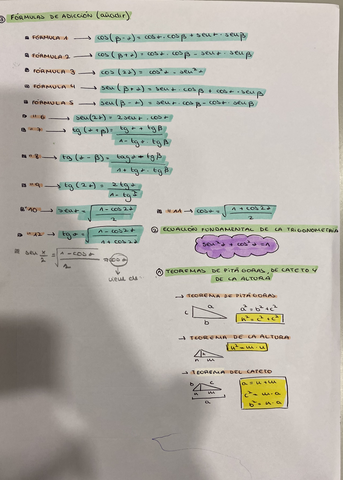 FÓRMULAS DE ADICCIÓN (añadir)
FÓRMULA 1 → cos(β-α) = cosα·cosβ + senα·senβ
FÓRMULA 2 → cos(β+α) = cosα·cosβ - senα·senβ
FÓRMULA 3 → cos(2α) = cos²α - sen²α
FÓRMULA 4 → sen(β+α) = senα·cosβ + cosα·senβ
FÓRMULA 5 → sen(β-α) =
6 → sen(2α) = 2senα·cosα
7 → tg(α+β) = tgα + tgβ / 1 - tgα·tgβ
8 → tg(α-β) = / 1 + tgα·tgβ
9 → tg(2α) = 2tgα / 1 - tg²α
10 → senα = √1 - cos2α / 2
11 → cosα = √1 + cos2α / 2
12 → tgα = √1 - cos2α / 1 + cos2α
sen α/2 = √1 - cosα / 2
ECUACIÓN FUNDAMENTAL DE LA TRIGONOMETRÍA
sen²α + cos²α = 1
TEOREMAS DE PITÁGORAS, DE CATETO Y
DE LA ALTURA
→ TEOREMA DE PITÁGORAS
c a b
a² = b² + c²
→ TEOREMA DE LA ALTURA
n m
h² = m·n
→ TEOREMA DEL CATETO
b c
n m
a
a = n + m
c² = m·a
b² = n·a